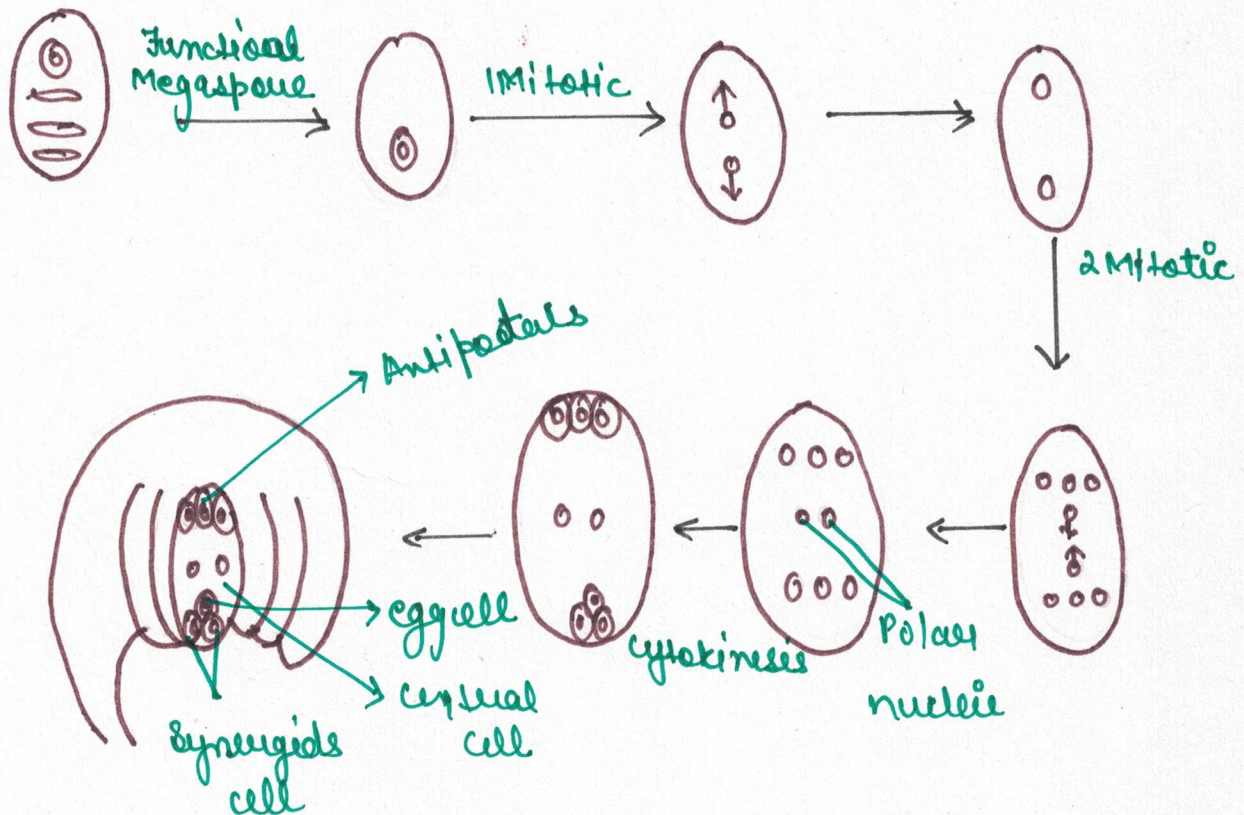 Functional
Megaspore
1 Mitotic
2 Mitotic
Antipodals
egg cell
Central
cell
Synergids
cell
cytokinesis
Polar
nucleie